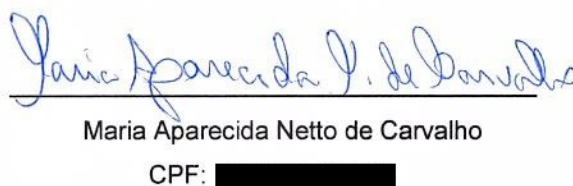 Maria Aparecida N. de Carvalho
Maria Aparecida Netto de Carvalho
CPF: